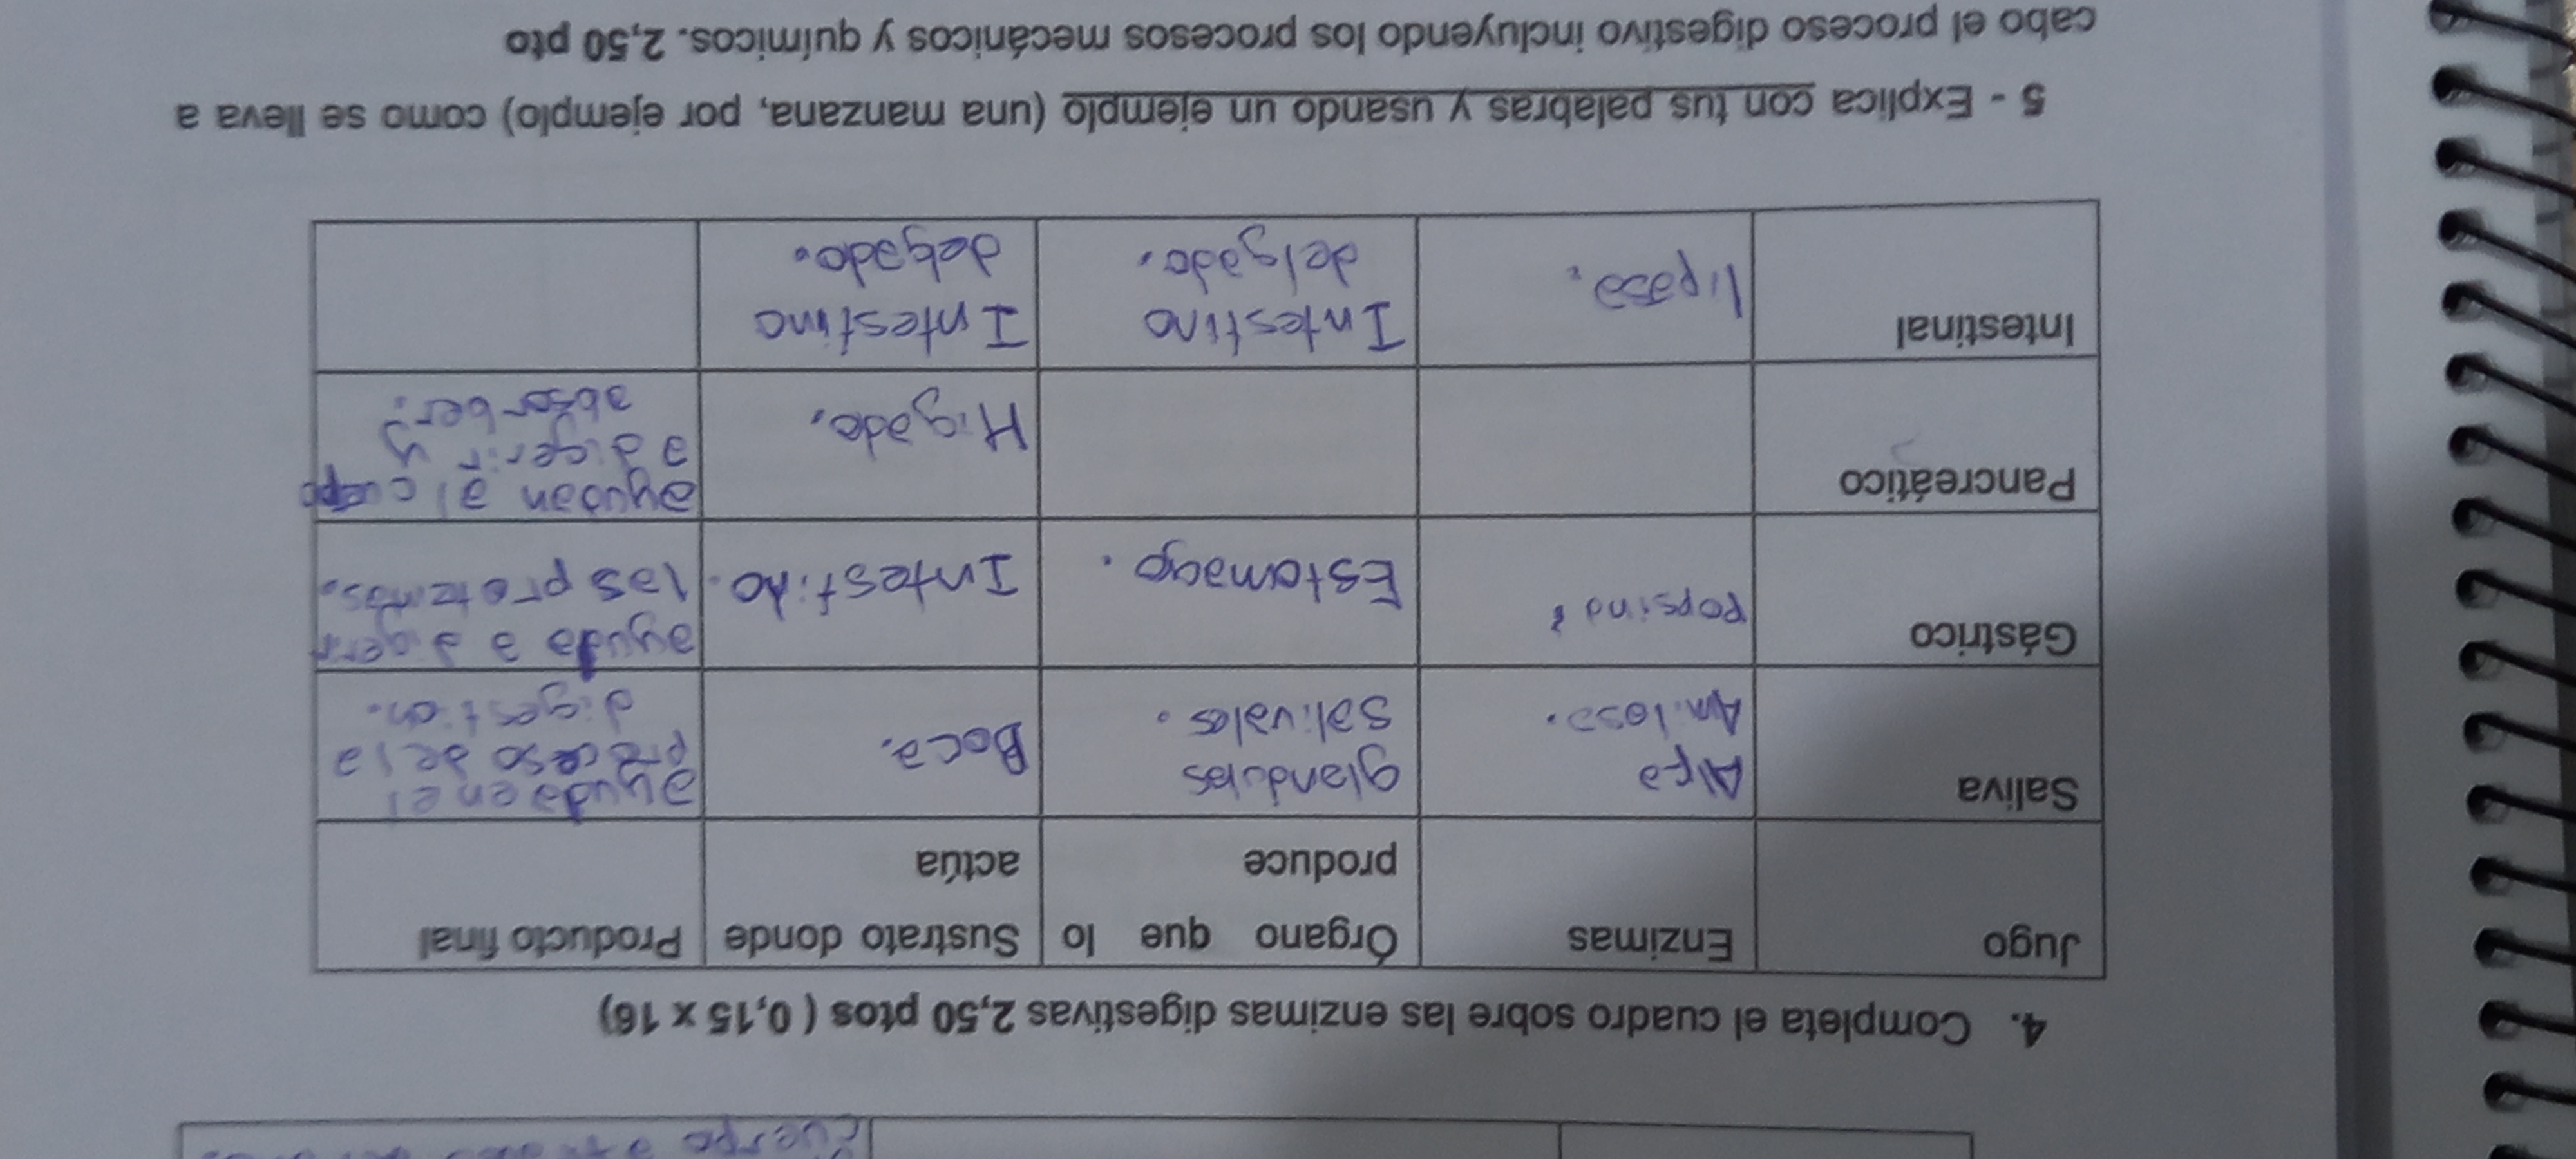 4. Completa el cuadro sobre las enzimas digestivas 2,50 ptos ( 0,15 x 16)
Jugo
Enzimas
Órgano que lo
produce
Sustrato donde
actúa
Producto final
Saliva
Alfa
Amilasa.
glandulas
salivales.
Boca.
ayuda en el
proceso de la
digestion.
Gástrico
Popsina
Estomago.
Intestino.
ayuda a digerir
las proteinas.
Pancreático
Higado.
ayudan al cuerpo
a digerir y
absorber.
Intestinal
lipasa.
Intestino
delgado.
Intestino
delgado.
5 - Explica con tus palabras y usando un ejemplo (una manzana, por ejemplo) como se lleva a
cabo el proceso digestivo incluyendo los procesos mecánicos y químicos. 2,50 pto